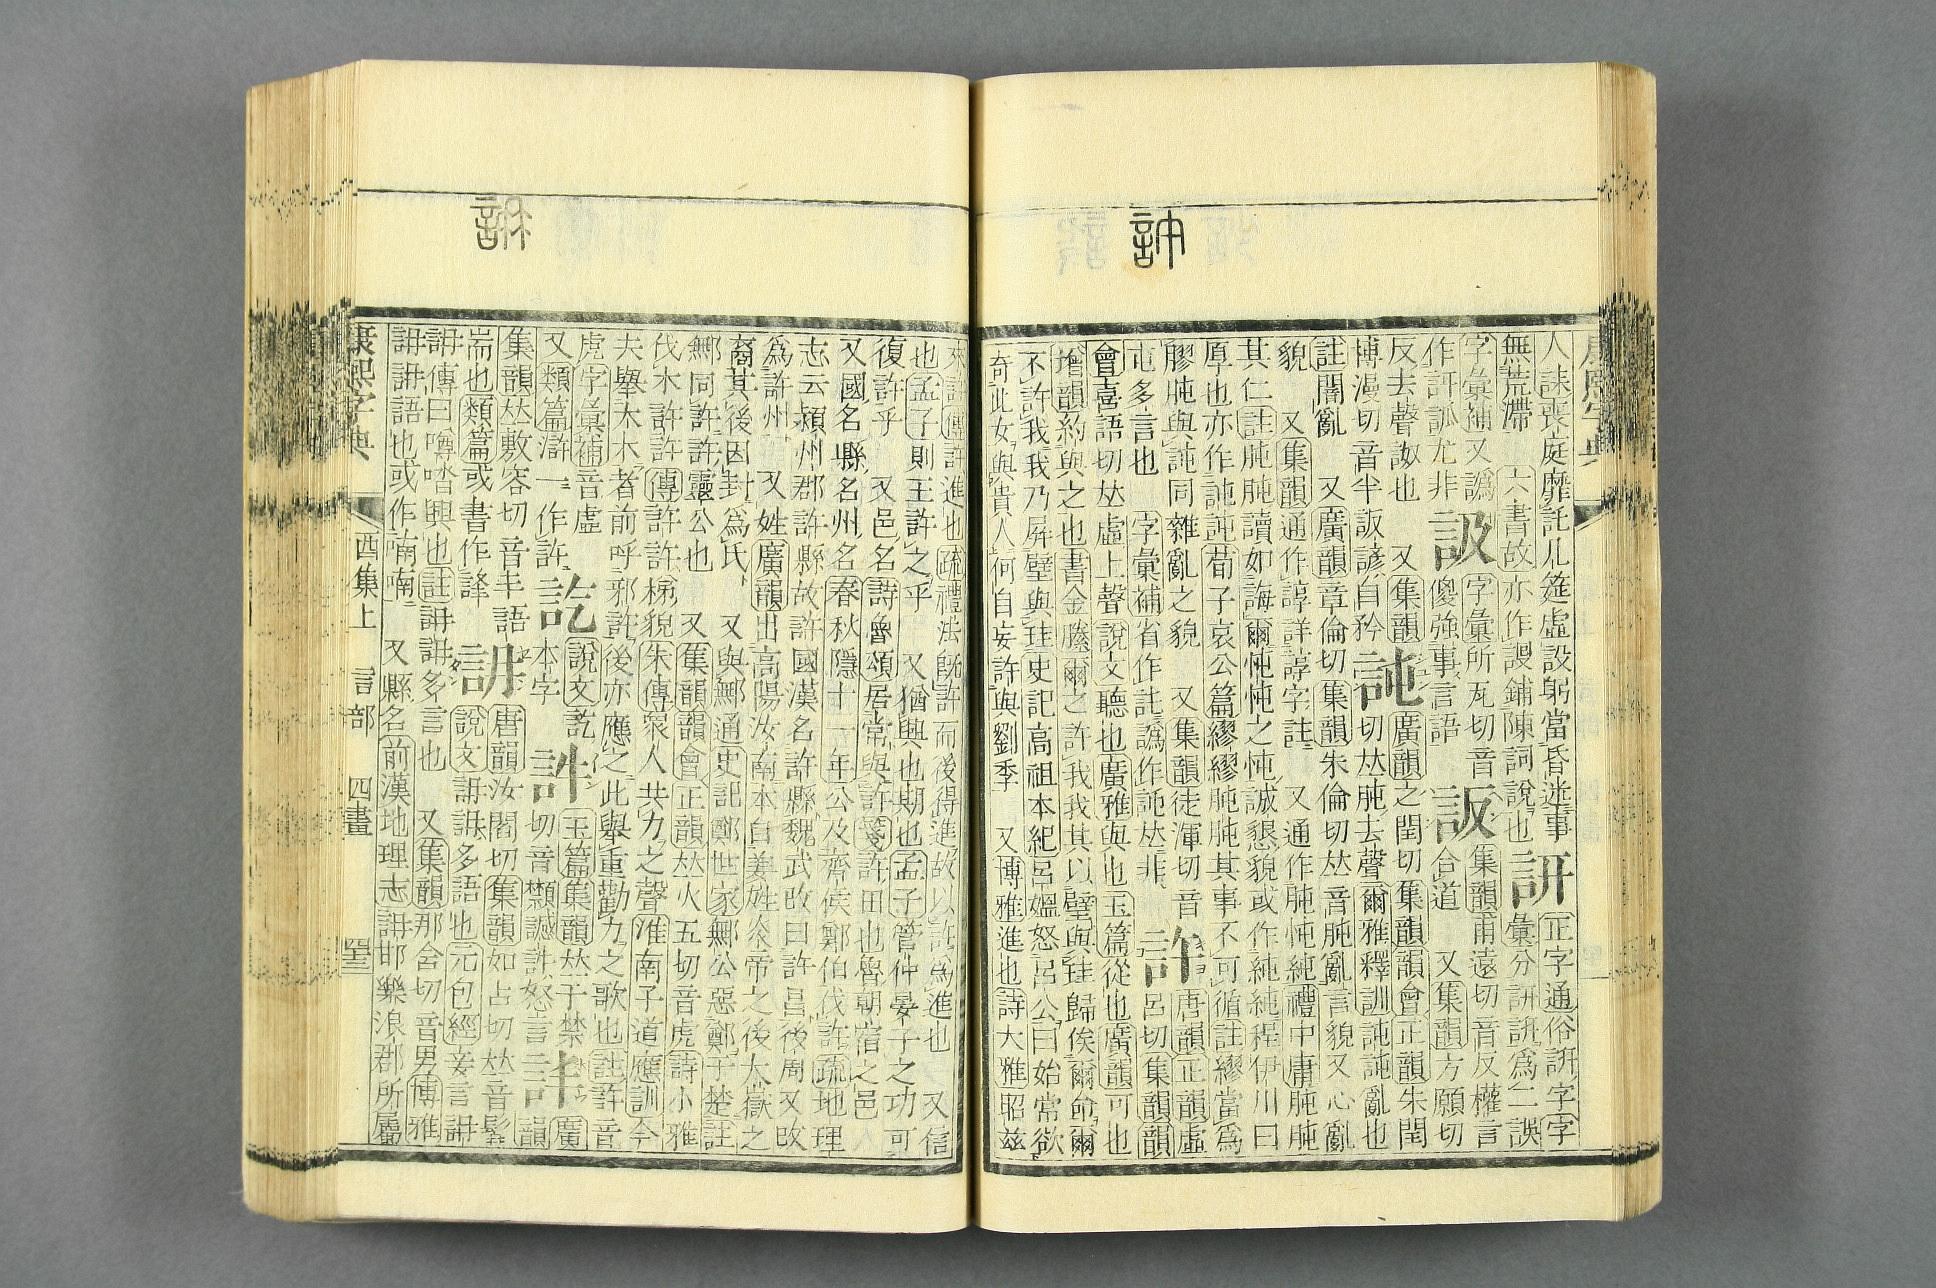 人誄喪庭靡託几筵虛設躬當昏迷事
無荒滯 六書故亦作謏鋪陳詞說也 訮 正字通俗訮字字
字彙補又譌 字彙所瓦切音 彙分訮訮爲二誤
作訮訿尤非 㕮 傻強事言語 訉 集韻甫遠切音反權言
反去聲訉也 又集韻 合道 又集韻方願切
博漫切音半訉諺自矜 訰 廣韻之閏切集韻韻會正韻朱閏
切𠀤肫去聲爾雅釋訓訰訰亂也
註闇亂 又廣韻章倫切集韻朱倫切𠀤音肫亂言貌又心亂
貌 又集韻通作諄詳諄字註 又通作肫忳純禮中庸肫肫
其仁註肫肫讀如誨爾忳忳之忳誠懇貌或作純純程伊川曰
厚也亦作訰訰荀子哀公篇繆繆肫肫其事不可循註繆當爲
膠肫與訰同雜亂之貌 又集韻徒渾切音
屯多言也 字彙補省作託譌作訑𠀤非 許 唐韻正韻虛
呂切集韻韻
會喜語切𠀤虛上聲說文聽也廣雅與也玉篇從也廣韻可也
增韻約與之也書金縢爾之許我我其以璧與珪歸俟爾命爾
不許我我乃屏璧與珪史記高祖本紀呂媼怒呂公曰始常欲
奇此女與貴人何自妄許與劉季 又博雅進也詩大雅昭兹
來許傳許進也疏禮法旣許而後得進故以許爲進也 又信
也孟子則王許之乎 又猶與也期也孟子管仲晏子之功可
復許乎 又邑名詩魯頌居常與許箋許田也魯朝宿之邑
又國名縣名州名春秋隱十一年公及齊侯鄭伯伐許疏地理
志云潁州郡許縣故許國漢名許縣魏武改曰許昌後周又改
爲許州 又姓廣韻出高陽汝南本自姜姓炎帝之後大嶽之
裔其後因封爲氏 又與鄦通史記鄭世家鄦公惡鄭于楚註
鄦同許許靈公也 又集韻韻會正韻𠀤火五切音虎詩小雅
伐木許許傳許許柹貌朱傳衆人共力之聲淮南子道應訓今
夫舉大木者前呼邪許後亦應之此舉重勸力之歌也註許音
虎字彙補音虛
又類篇滸一作許 訖 說文訖 本字 訸 玉篇集韻𠀤于禁
切音類諴訸怒言 訲 廣
韻
集韻𠀤敷容切音丰語
耑也類篇或書作䜁 訷 唐韻汝閻切集韻如占切𠀤音髥
說文訷訷多語也元包經妄言訷
訷傳曰噂㳫興也註訷訷多言也 又集韻那含切音男博雅
訷訷語也或作喃喃 又縣名前漢地理志訷邯樂浪郡所屬
康熙字典 酉集上 言部 四畫